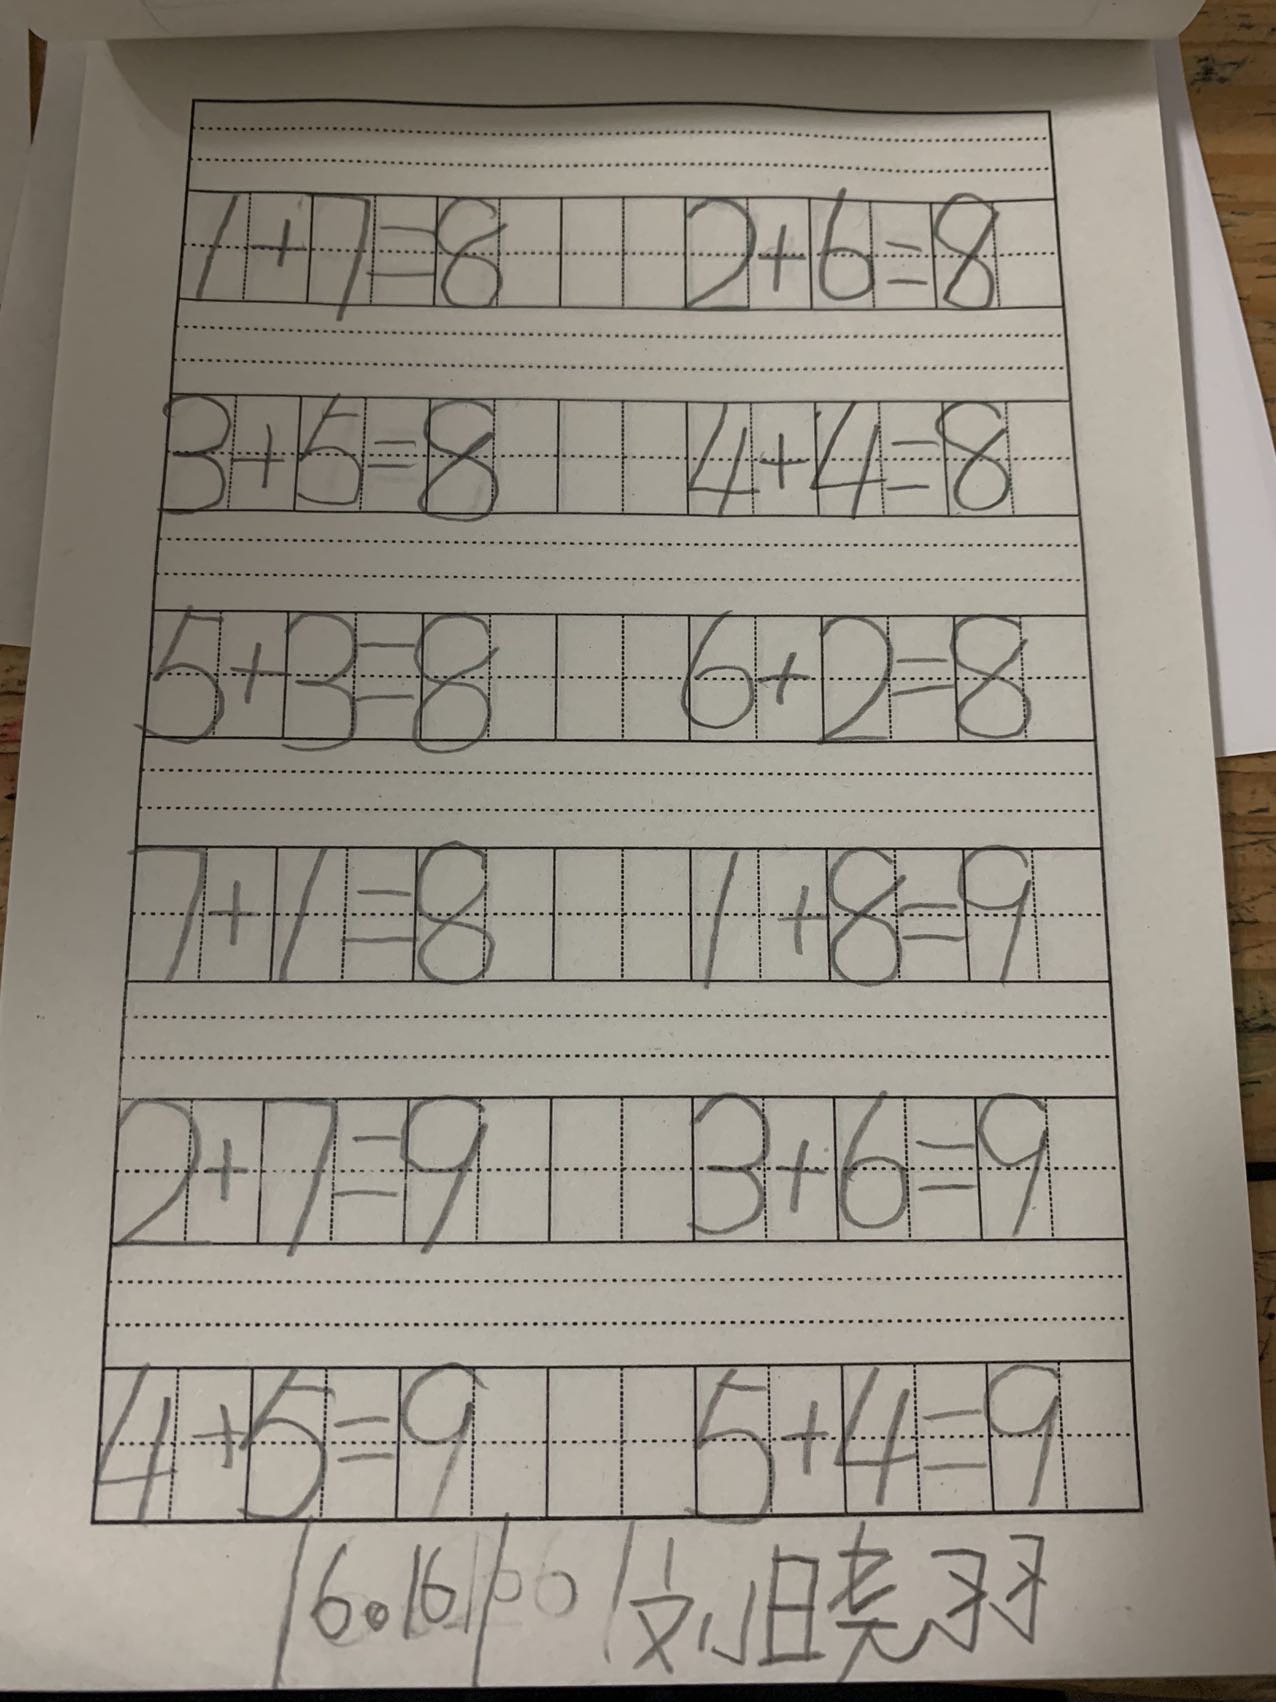 1+7=8 2+6=8
3+5=8 4+4=8
5+3=8 6+2=8
7+1=8 1+8=9
2+7=9 3+6=9
4+5=9 5+4=9
刘晓羽